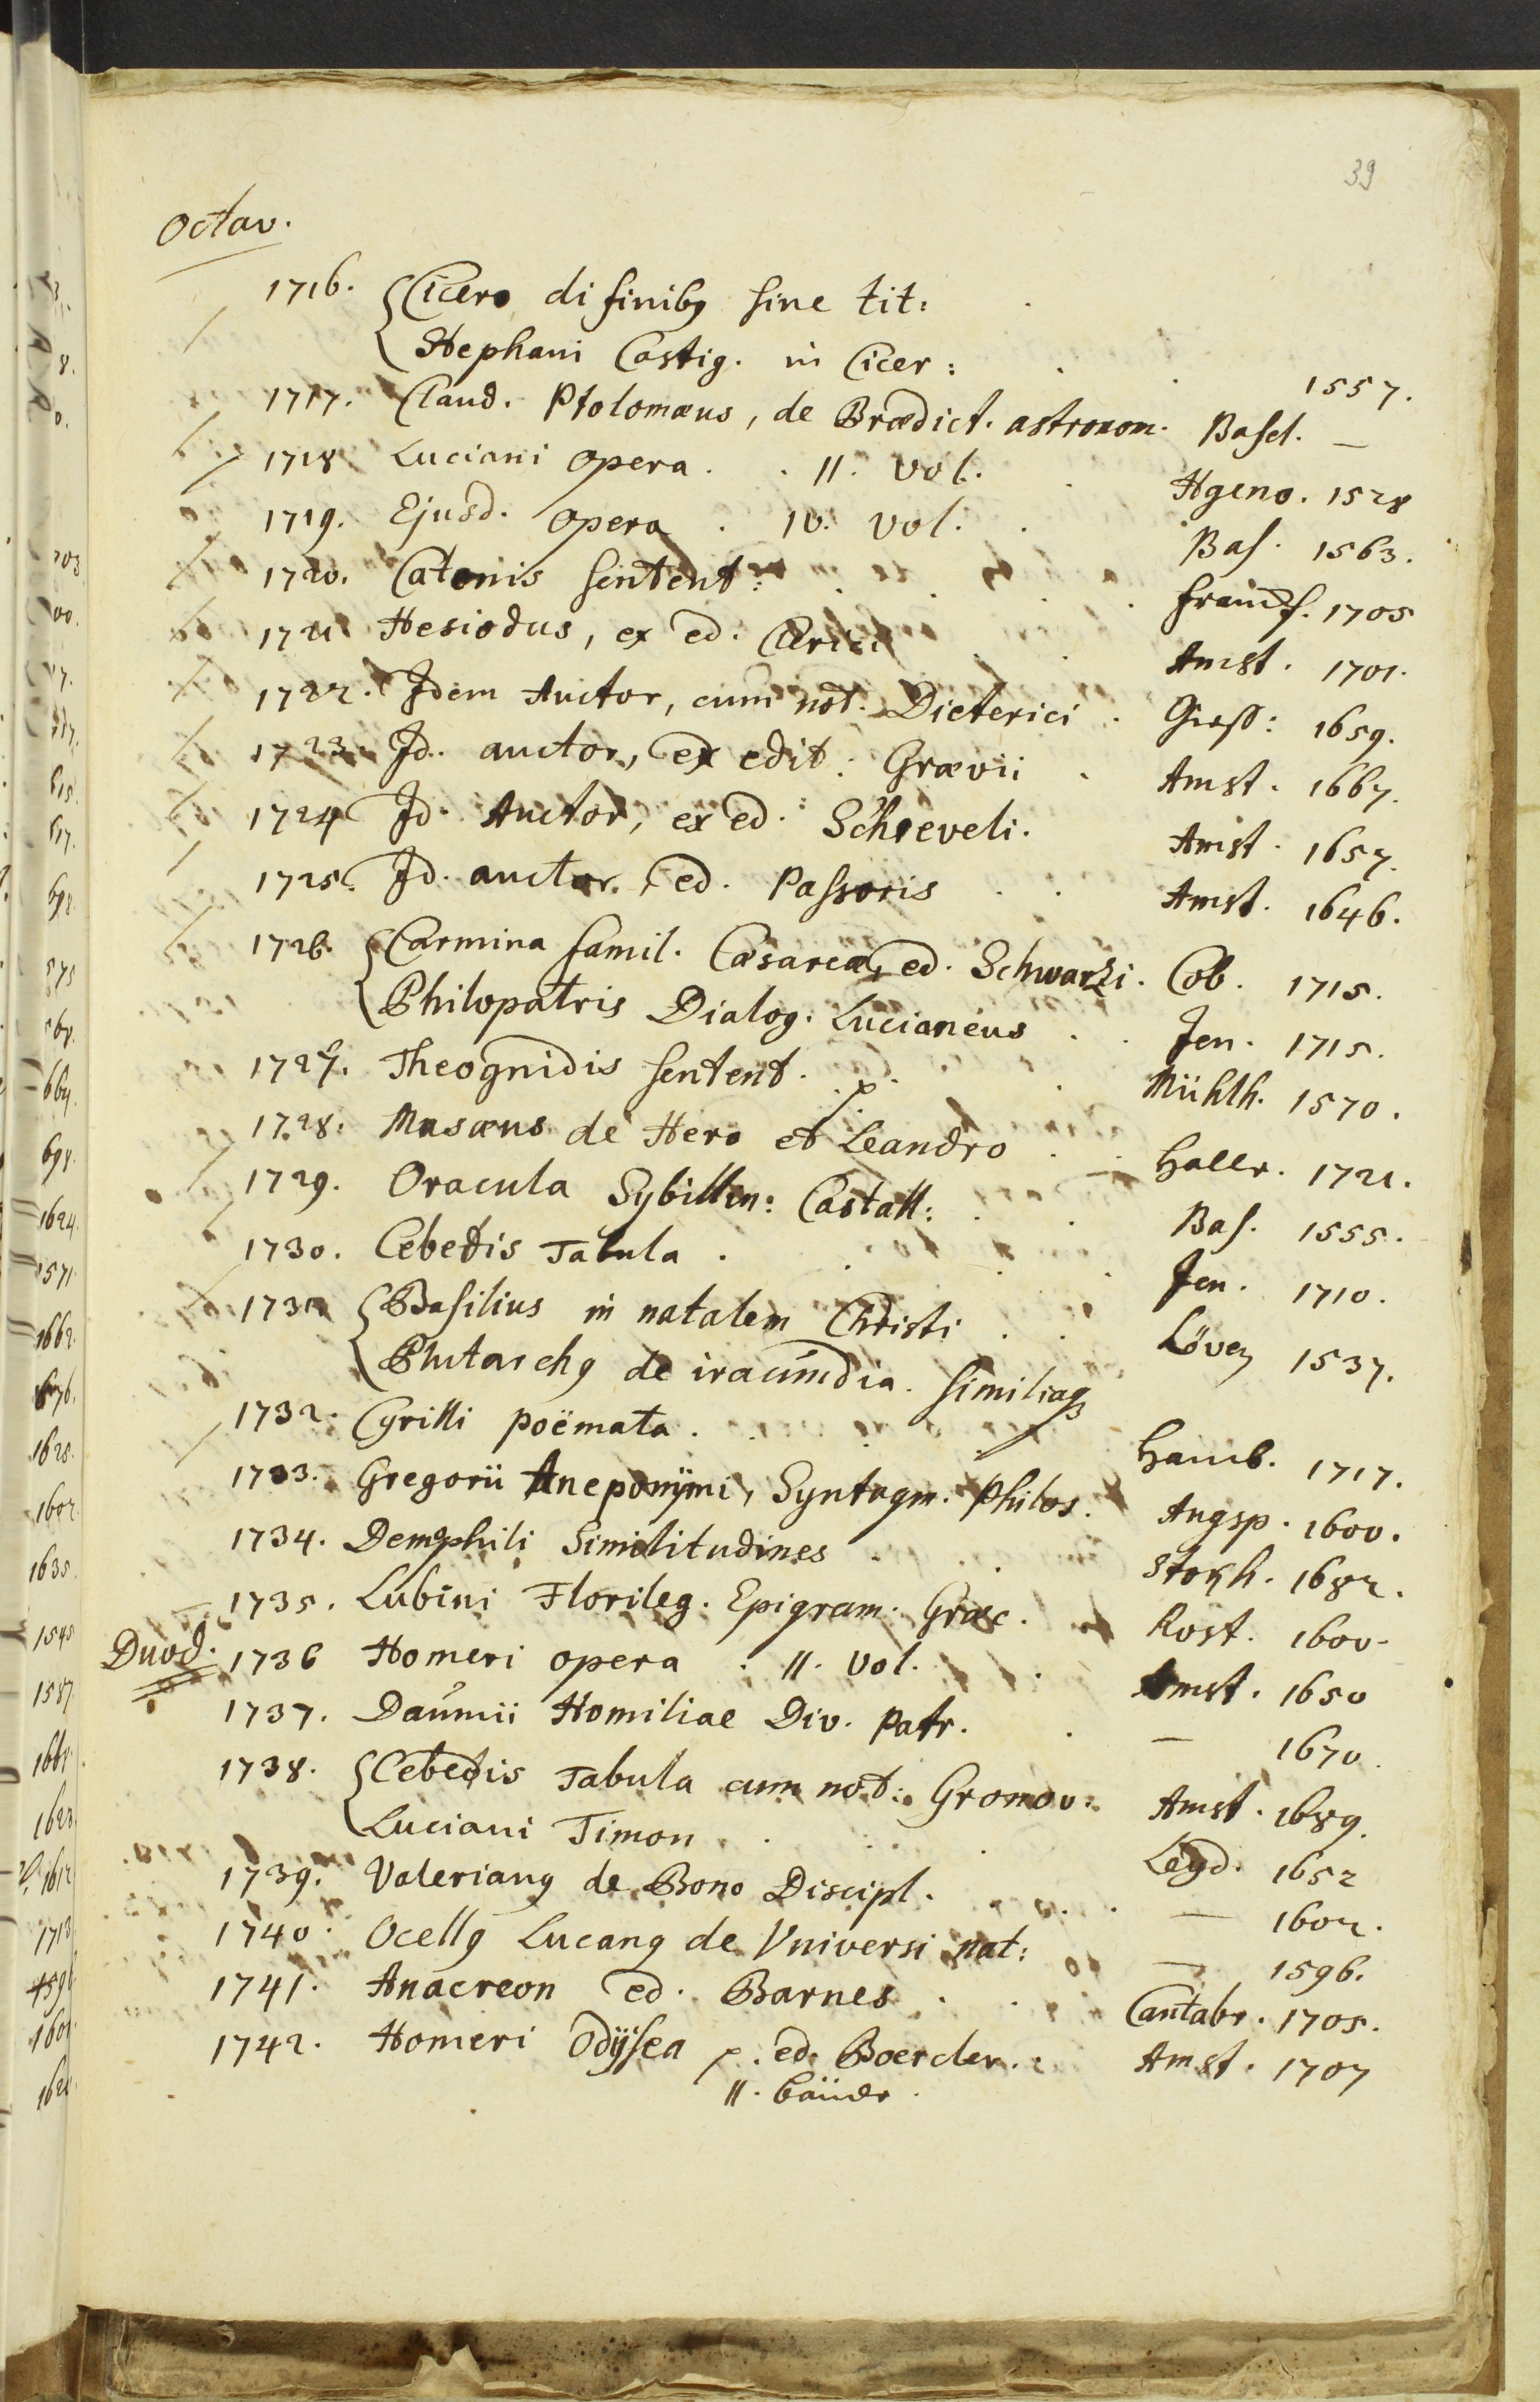 39
Octav.
1716. Cicero di finibꝯ sine tit:
Stephani Castig. in Cicer: 1557.
1717. Claud. Ptolomæus, de Prædict. astronom. Basel. —
1718 Luciani opera. II. Vol. Hgeno. 1528
1719. Ejusd. opera. IV. Vol. Bas. 1563.
1720. Catonis sentent: 1705
1721 Hesiodus, ex ed. Clerici Amst. 1701.
1722. Idem Auctor, cum not. Dieterici. Giess: 1659.
1723. Id. auctor, ex edit: Grævii. Amst. 1667.
1724 Id. Auctor, ex ed. Schreveli. Amst. 1657.
1725. Id. auctor, ed. Passoris Amst. 1646.
1726. Carmina famil. Cæsareæ, ed. Schwarzi. Cob. 1715.
Philopatris Dialog. Lucianeus Jen. 1715.
1727. Theognidis sentent. p. Mühlh. 1570.
1728. Musæus de Hero et Leandro Halle. 1721.
1729. Oracula Sybillin: Castall: Bas. 1555.
1730. Cebetis Tabula. Jen. 1710.
1731 Basilius in natalem Christi Löven 1537.
Plutarchꝯ de iracundia. similiaqꝫ
1732. Cyrilli poëmata. Hamb. 1717.
1733. Gregorii Aneponÿmi, Syntagm. Philos. Augsp. 1600.
1734. Demophili Similitudines Stokh. 1682.
1735. Lubini Florileg. Epigram. Græc. Rost. 1600.
Duod. 1736 Homeri opera. II. Vol. Amst. 1650
1737. Daumii Homiliae Div. Patr. — 1670.
1738. Cebetis Tabula cum not: Gronov. Amst. 1689.
Luciani Timon. Leyd. 1652
1739. Valerianꝯ de Bono Discipl. — 1602.
1740. Ocellꝯ Lucanꝯ de Universi nat: — 1596.
1741. Anacreon ed. Barnes. Cantabr. 1705.
1742. Homeri Odÿsea p. ed. Boercler. Amst. 1707
II. Bände.